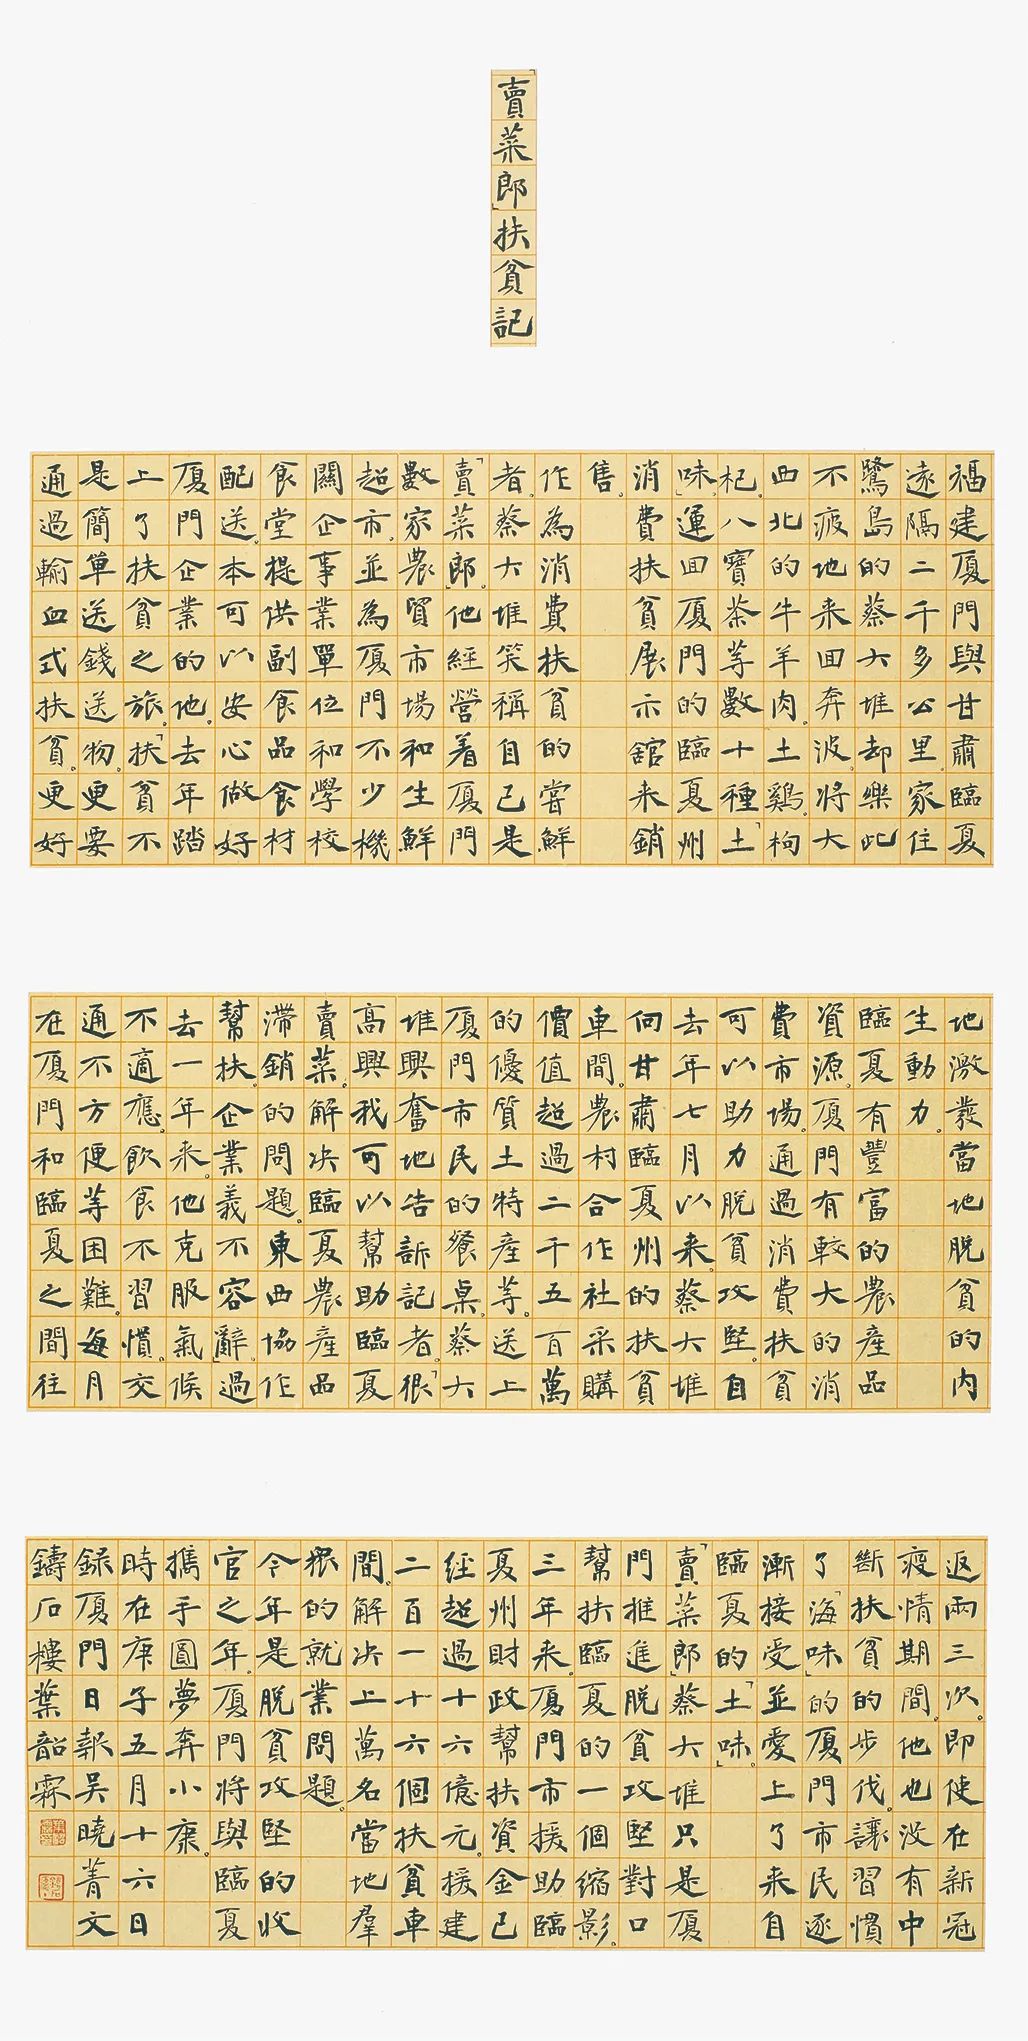 「賣菜郎」扶貧記
福建厦門與甘肅臨夏
遠隔二千多公里。家住
鷺島的蔡大堆却樂此
不疲地来回奔波。將大
西北的牛羊肉。土鷄。枸
杞。八寶茶等數十種「土
味」。運回厦門的臨夏州
消費扶貧展示舘来銷
售。
作為消費扶貧的嘗鮮
者。蔡大堆笑稱自己是
「賣菜郎」。他經營着厦門
數家農貿市場和生鮮
超市。並為厦門不少機
關企事業單位和學校
食堂提供副食品食材
配送。本可以安心做好
厦門企業的他。去年踏
上了扶貧之旅。「扶貧不
是簡單送錢送物。更要
通過輸血式扶貧。更好
地激發當地脱貧的内
生動力。
臨夏有豐富的農産品
資源。厦門有較大的消
費市場。通過消費扶貧
可以助力脱貧攻堅。自
去年七月以来。蔡大堆
向甘肅臨夏州的扶貧
車間。農村合作社采購
價值超過二千五百萬
的優質土特産等。送上
厦門市民的餐桌。蔡大
堆興奮地告訴記者。「很
高興我可以幫助臨夏
賣菜。解决臨夏農産品
滯銷的問題。東西協作
幫扶。企業義不容辭」。過
去一年来。他克服氣候
不適應。飲食不習慣。交
通不方便等困難。每月
在厦門和臨夏之間往
返兩三次。即使在新冠
疫情期間。他也没有中
斷扶貧的步伐。讓習慣
了「海味」的厦門市民逐
漸接受並愛上了来自
臨夏的「土味」。
「賣菜郎」蔡大堆只是厦
門推進脱貧攻堅對口
幫扶臨夏的一個縮影。
三年来。厦門市援助臨
夏州財政幫扶資金已
經超過十六億元。援建
二百一十六個扶貧車
間。解决上萬名當地羣
眾的就業問題。
今年是脱貧攻堅的收
官之年。厦門將與臨夏
攜手圓夢奔小康。
時在庚子五月十六日
録厦門日報吴曉菁文
鑄石樓葉韶霖